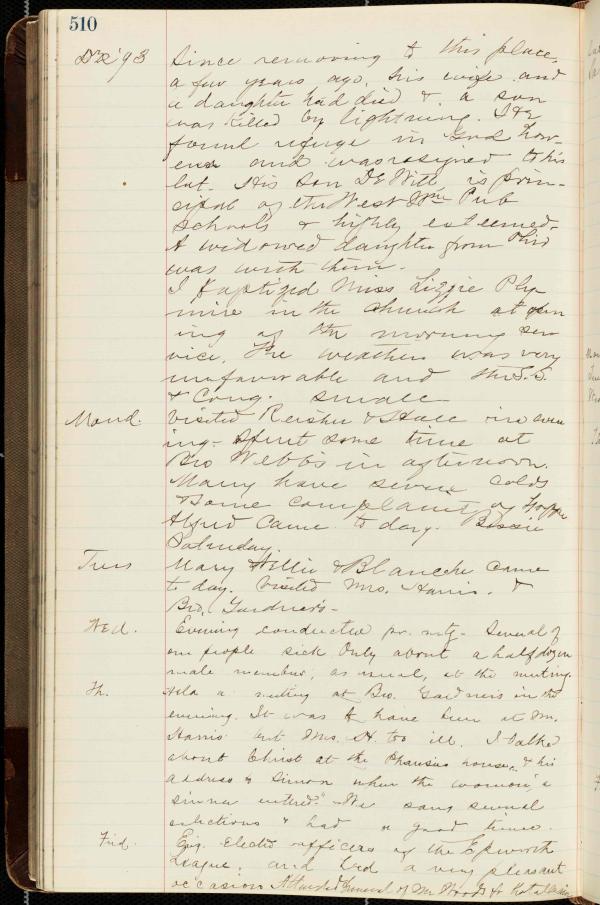 510
Dec '93 Since removing to this place,
a few years ago, his wife and
a daughter had died & a son
was killed by lightning. He
found refuge in God how-
ever and was resigned to his
lot. His son DeWitt is prin-
cipal of the West Wm Pub
Schools & highly esteemed.
A widowed daughter from Ohio
was with them.
I baptized Miss Lizzie Ply-
mire in the church at open
ing of the morning ser
vice. The weather was very
unfavorable and the S.S.
& Cong. small
Mond. Visited Reisher & Hall in even
ing. Spent some time at
Bro Webb's in afternoon.
Many have severe colds
& some complaint of
Alfred came to day. Bessie
Saturday.
Tues Mary Nellie & Blanche came
to day. Visited Mrs. Harris. &
Bro. Gardner's.
Wed. Evening conducted pr. mtg. Several of
our people sick Only about a half dozen
male member, as usual, at the meeting.
Th. Held a meeting at Bro. Gardners in the
evening. It was to have been at Mr.
Harris but Mrs. H. too ill. I talked
about Christ at the Pharisees house, & his
address to Simon when the woman, "a
sinner entered." We sang several
selections & had a good time.
Frid. Evg. Elected officers of the Epworth
League, and had a very pleasant
occasion Attended funeral of Mr